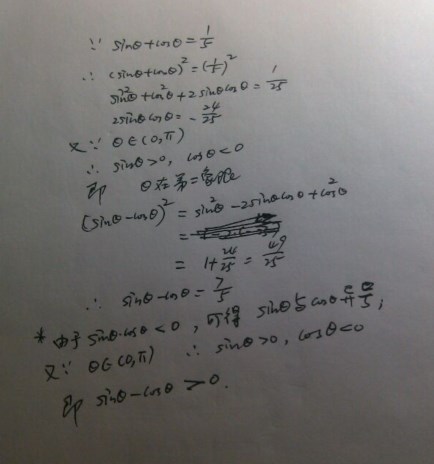 ∵ sinθ+cosθ=1/5
∴ (sinθ+cosθ)²=(1/5)²
sin²θ+cos²θ+2sinθcosθ=1/25
2sinθcosθ=-24/25
又∵ θ∈(0,π)
∴ sinθ>0, cosθ<0
即 θ在第二象限
(sinθ-cosθ)²=sin²θ-2sinθcosθ+cos²θ
=
=1+24/25=49/25
∴ sinθ-cosθ=7/5
* 由于sinθ·cosθ<0, 可得 sinθ与cosθ异号;
又∵ θ∈(0,π) ∴ sinθ>0, cosθ<0
即 sinθ-cosθ>0.